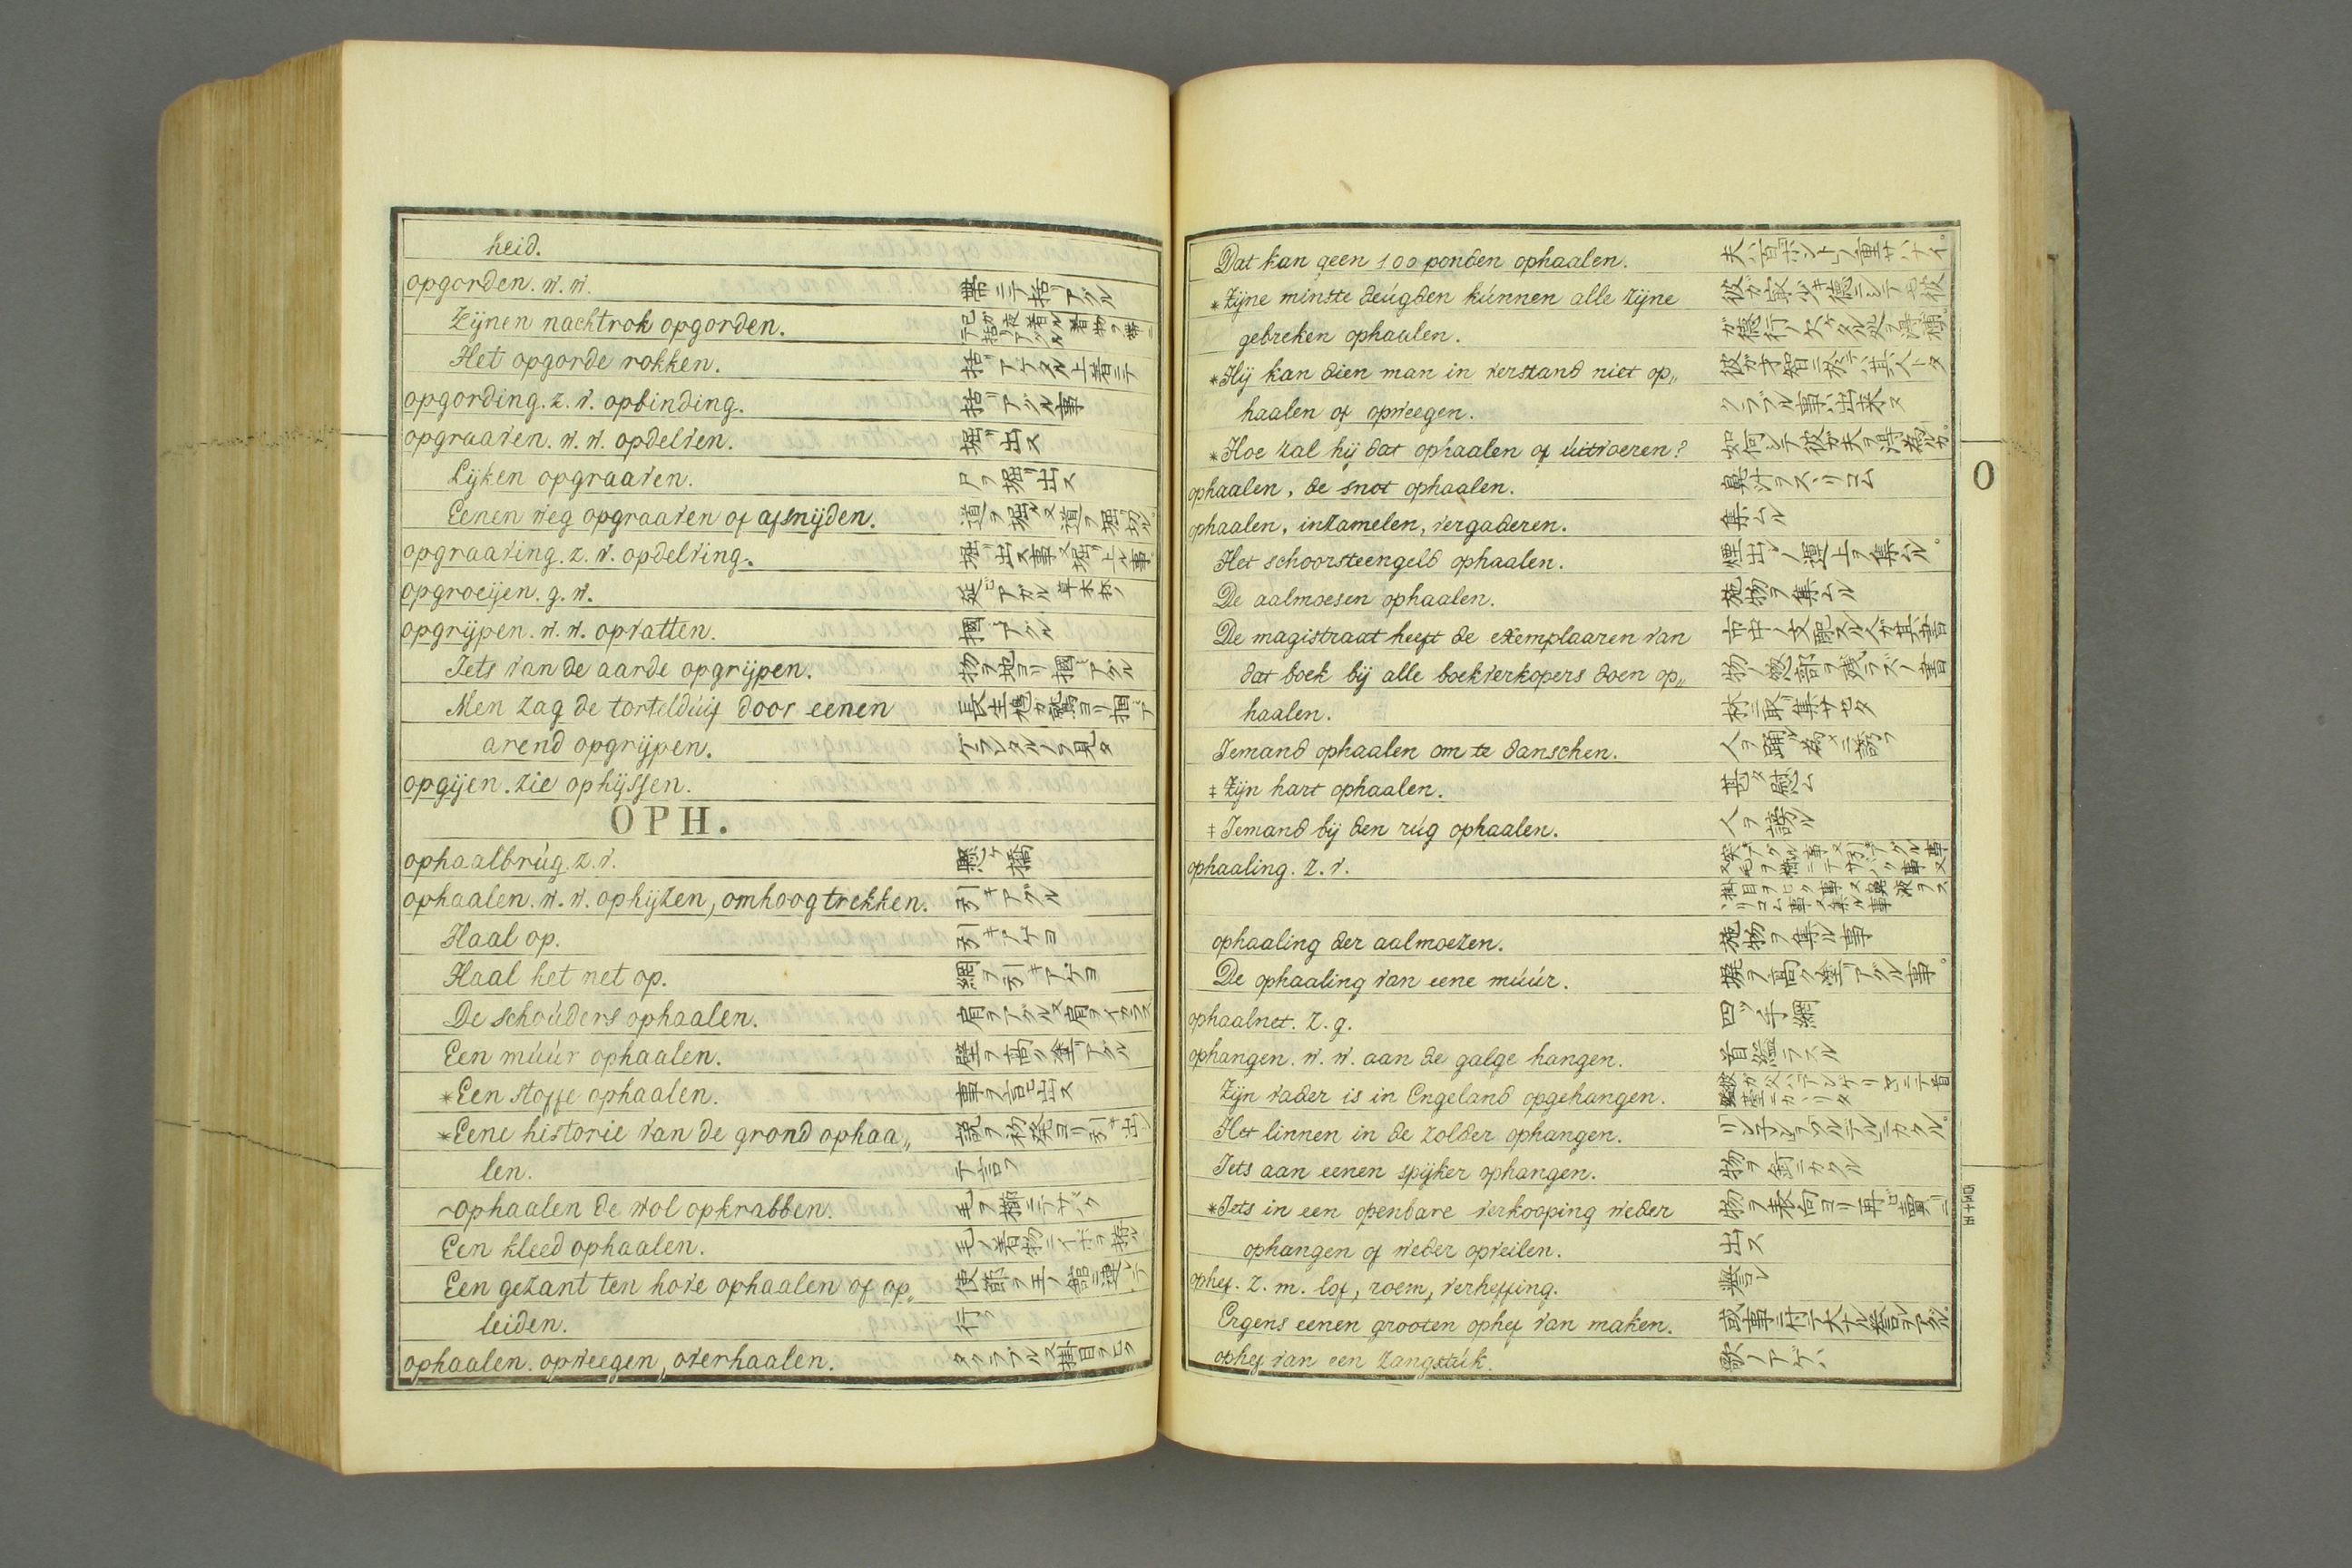 heid.
opgorden. w. w. 帯ニテ括リアグル
Zijnen nachtrok opgorden. 己ガ夜着ル着物ヲ帯ニテ括リアグル
Het opgorde rokken. 括リアゲタル上着ニテ
opgording. z. v. opbinding. 括リアグル事
opgraaven. w. w. opdelven. 堀リ出ス
Lijken opgraaven. 尸ヲ堀リ出ス
Eenen weg opgraaven of afsnijden. 道ヲ堀ル又道ヲ堀切ル。
opgraaving. z. v. opdelving. 堀リ出ス事又堀リ上ル事
opgroeijen. g. w. 延ビアガル草木抔ノ
opgrijpen. w. w. opvatten. 掴ミアグル
Iets van de aarde opgrijpen. 物ヲ地ヨリ掴ミアグル
Men zag de tortelduif door eenen 長生鳩ガ鷲ヨリ掴ミア
arend opgrijpen. ゲラレタルノヲ見タ
opgijen. zie ophijssen.
OPH.
ophaalbrúg. z. v. 懸ケ橋
ophaalen. w. w. ophijzen, omhoog trekken. 引キアグル
Haal op. 引キアゲヨ
Haal het net op. 網ヲ引キアゲヨ
De schoúders ophaalen. 肩ヲアグル又肩ヲイカラス
Een múúr ophaalen. 壁ヲ高ク塗リアグル
*Een stoffe ophaalen. 事ヲ言ヒ出ス
*Eene historie van de grond ophaa„ 説ヲ初発ヨリ引キ出シ
len. テ言フ
~ophaalen de wol opkrabben. 毛ヲ櫛ニテサバク
Een kleed ophaalen. 毛ノ着物ニイボヲ
Een gezant ten hove ophaalen of op„ 使節ヲ王ノ館ニ連レテ
leiden. 行ク
ophaalen. opweegen, overhaalen. タクラブル又掛目ヲヒク
Dat kan geen 100 ponden ophaalen. 夫ハ百ポントノ重サハナイ。
*Zijne minste deúgden kúnnen alle zijne 彼ガ最少キ徳ニシテモ彼
gebreken ophaalen. ガ徳行ノ欠ケタル処ヲ得補フ。
*Hij kan dien man in verstand niet op„ 彼ガ才智ニ於テハ其人トタ
haalen of opweegen. クラブル事ハ出来ヌ
*Hoe zal hij dat ophaalen of úitvoeren? 如何シテ彼ガ夫ヲ得為ルカ。
ophaalen, de snot ophaalen. 鼻汁ヲスヽリコム
ophaalen, inzamelen, vergaderen. 集ムル
Het schoorsteengeld ophaalen. 煙出シノ運上ヲ集ムル。
De aalmoesen ophaalen. 施物ヲ集ムル
De magistraat heeft de exemplaaren van 市中ノ支配スル人ガ其書
dat boek bij alle boekverkopers doen op„ 物ノ惣部ヲ残ラズノ書
haalen. 林ニ取リ集サセタ
Iemand ophaalen om te danschen. 人ヲ踊ル為メニ誘フ
‡ Zijn hart ophaalen. 甚タ慰ム
‡ Iemand bij den rúg ophaalen. 人ヲ謗ル
ophaaling. z. v.
ophaaling der aalmoezen. 施物ヲ集ル事
De ophaaling van eene múúr. 塀ヲ高ク塗リアグル事。
ophaalnet. z. g. 四ツ手網
ophangen. w. w. aan de galge hangen. 首縊ラスル
Zijn vader is in Engeland opgehangen. 彼ガ父ハアンゲリヤニテ首縊臺ニカヽリタ
Het linnen in de zolder ophangen.
Iets aan eenen spijker ophangen. 物ヲ釘ニカクル
*Iets in een openbare verkooping weder 物ヲ表向ヨリ再ビ賣リニ
ophangen of weder opveilen. 出ス
ophef. z. m. lof, roem, verheffing. 誉レ
Ergens eenen grooten ophef van maken. 或事ニ付テ大ナル誉ヲアグル。
ophef van een zangstúk. 歌ノアゲハ
O
四百十四